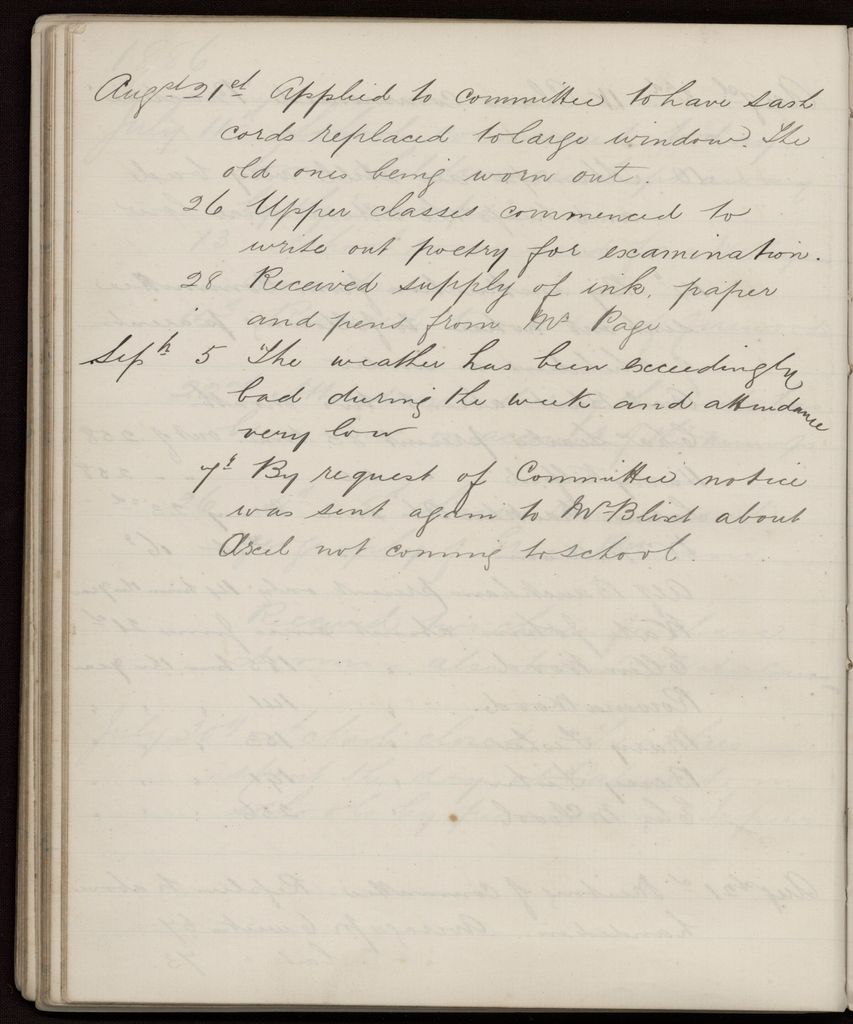 Augst 21st Applied to committee to have sash
cords replaced to large window. The
old ones being worn out.
26 Upper classes commenced to
write out poetry for examination.
28 Received supply of ink, paper
and pens from Mr Page
Seph 5 The weather has been exceedingly
bad during the week and attendance
very low
7th By request of Committee notice
was sent again to Mr Blixt about
Axel not coming to school.